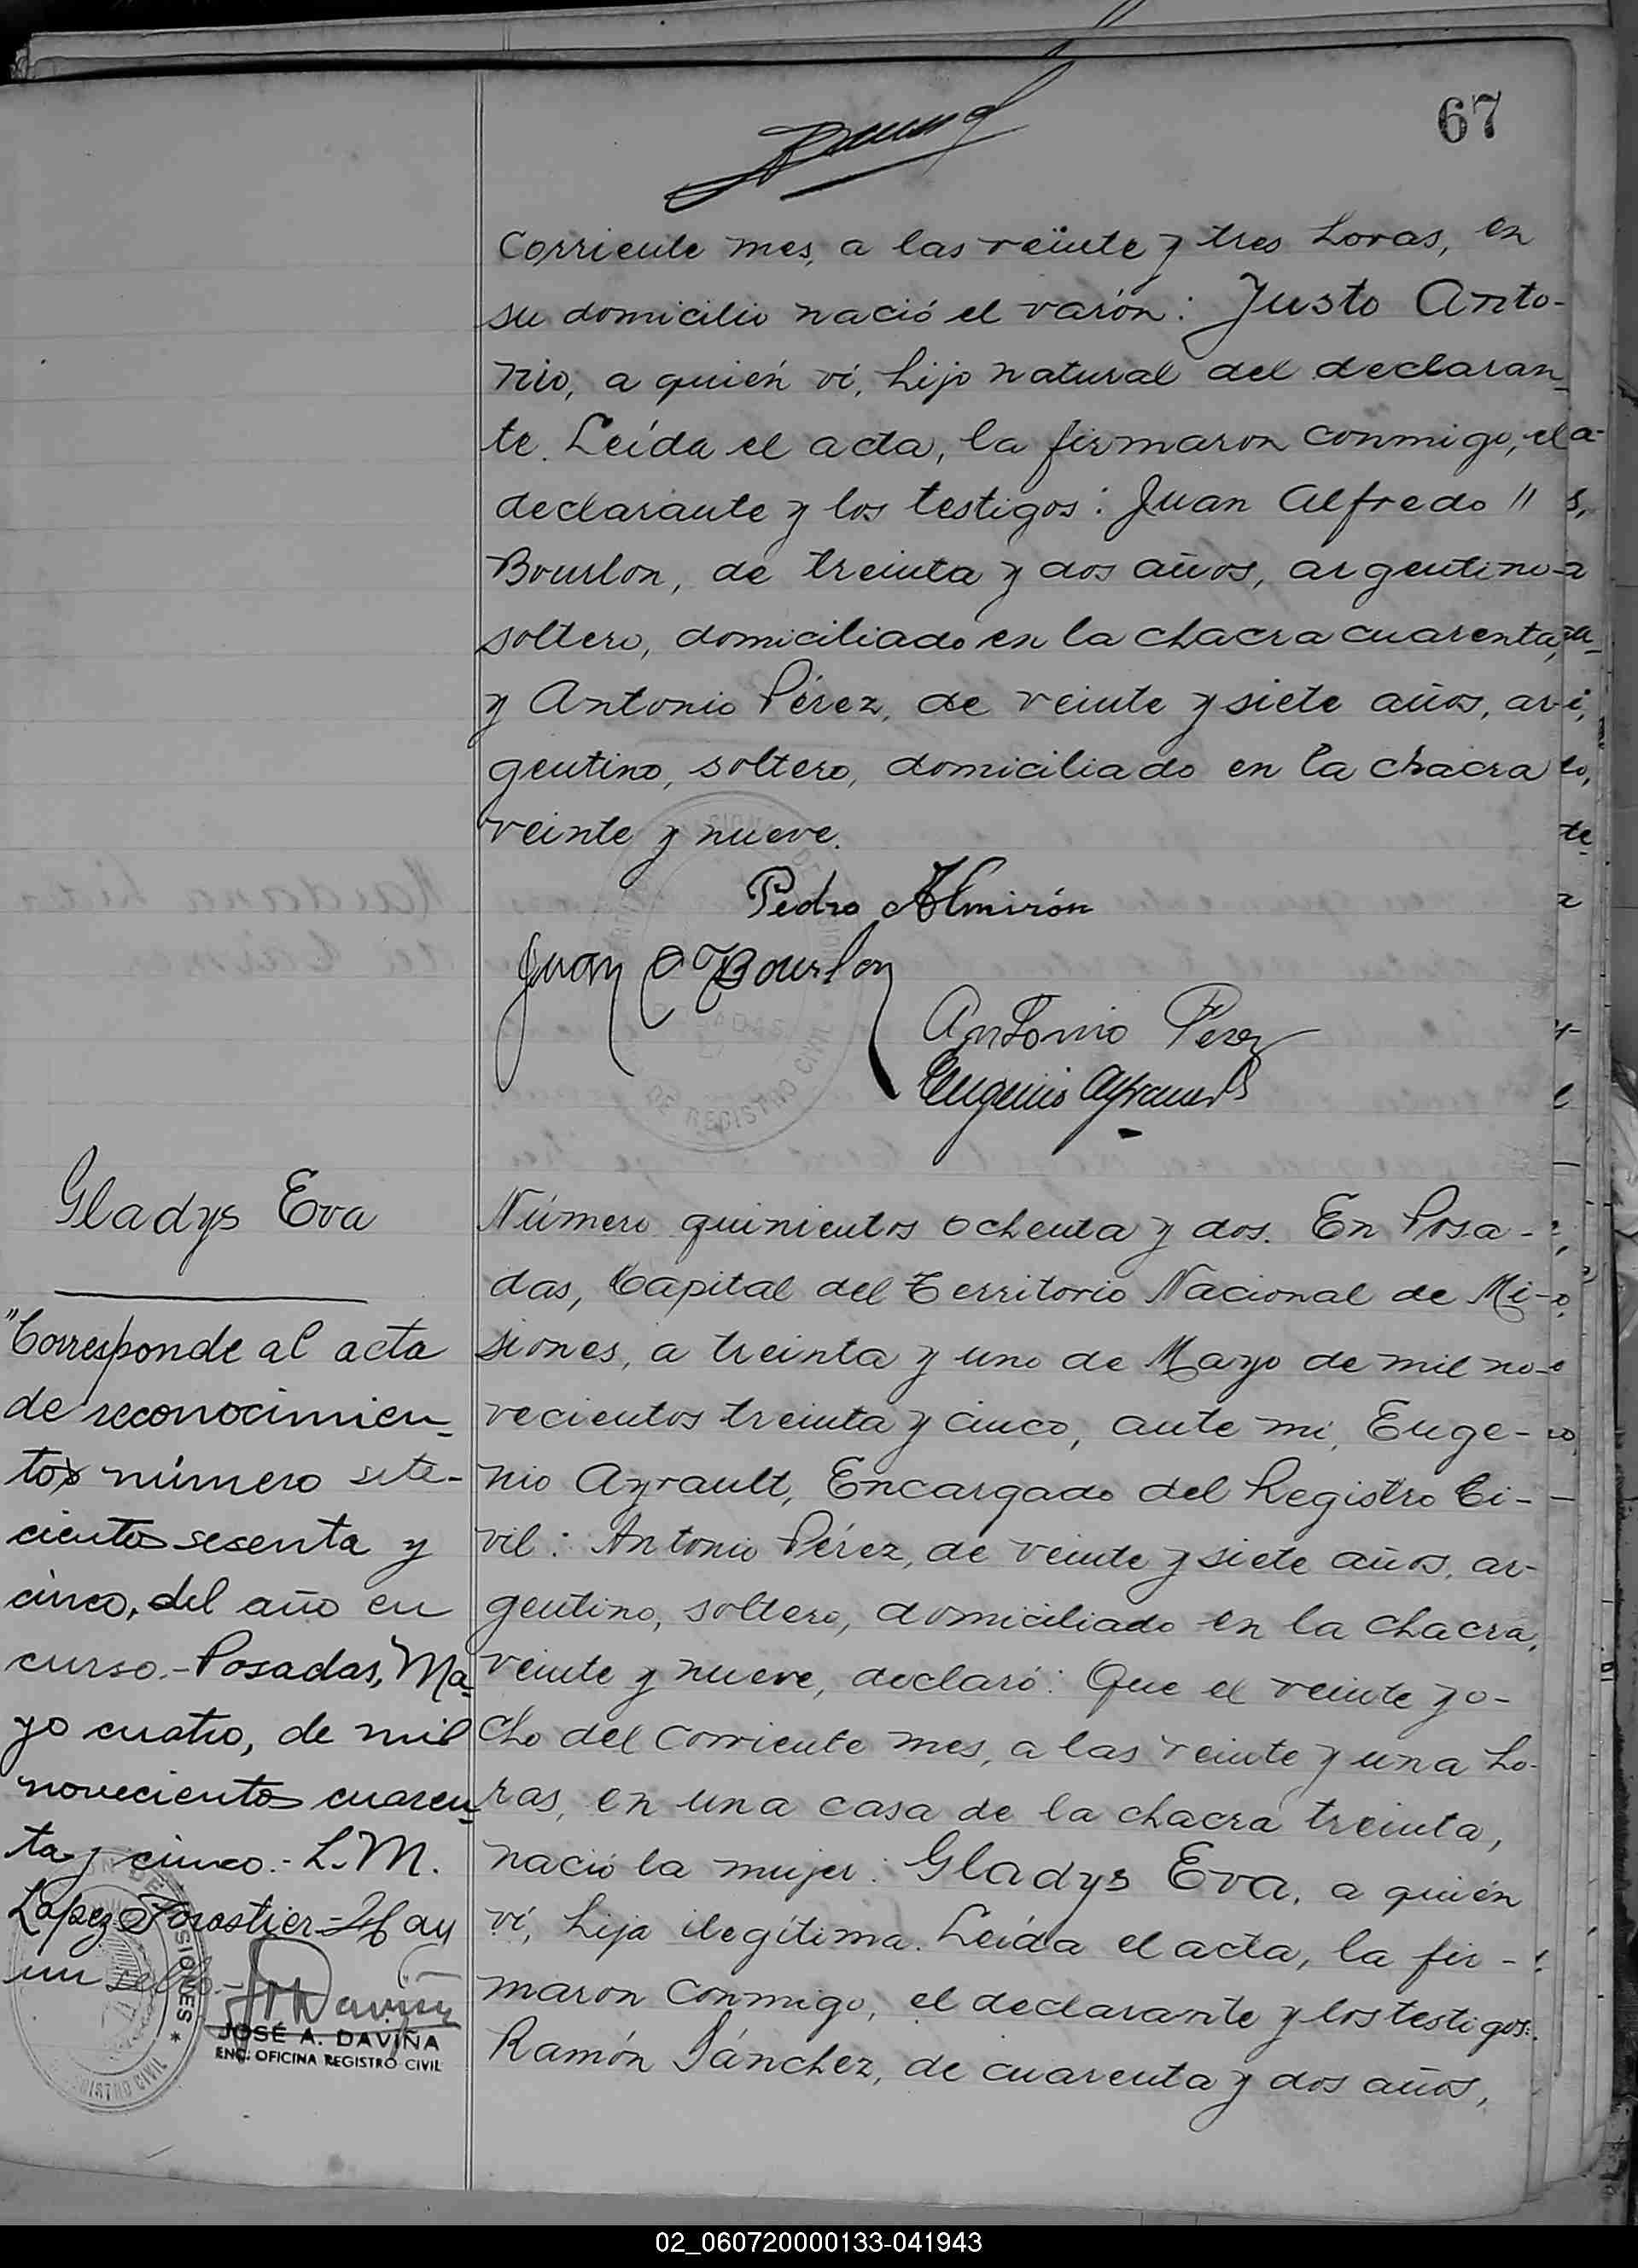 67
corriente mes, a las veinte y tres horas, en
su domicilio nació el varón: Justo Anto-
nio, a quién ví, hijo natural del declaran-
te. Leída el acta, la firmaron conmigo, el
declarante y los testigos: Juan Alfredo "
Bourlon, de treinta y dos años, argentino
soltero, domiciliado en la chacra cuarenta,
y Antonio Pérez, de veinte y siete años, ar-
gentino, soltero, domiciliado en la chacra
veinte y nueve.
Pedro Almirón
Juan A Bourlon
Antonio Perez
Eugenio Ayrault
DE REGISTRO CIVIL
Gladys Eva
"Corresponde al acta
de reconocimien-
to número sete-
cientos sesenta y
cinco, del año en
curso.- Posadas, Ma-
yo cuatro, de mil
novecientos cuaren-
ta y cinco.- L. M.
Lopez Forastier- Hay
un sello.-
JOSÉ A. DAVIÑA
ENC. OFICINA REGISTRO CIVIL
Número quinientos ochenta y dos. En Posa-
das, Capital del Territorio Nacional de Mi-
siones, a treinta y uno de Mayo de mil no-
vecientos treinta y cinco, ante mi, Euge-
nio Ayrault, Encargado del Registro Ci-
vil: Antonio Pérez, de veinte y siete años, ar-
gentino, soltero, domiciliado en la chacra,
veinte y nueve, declaró: Que el veinte y o-
cho del corriente mes, a las veinte y una ho-
ras, en una casa de la chacra treinta,
nació la mujer: Gladys Eva, a quién
ví, hija ilegítima. Leída el acta, la fir-
maron conmigo, el declarante y los testigos:
Ramón Sánchez, de cuarenta y dos años,
02_060720000133-041943